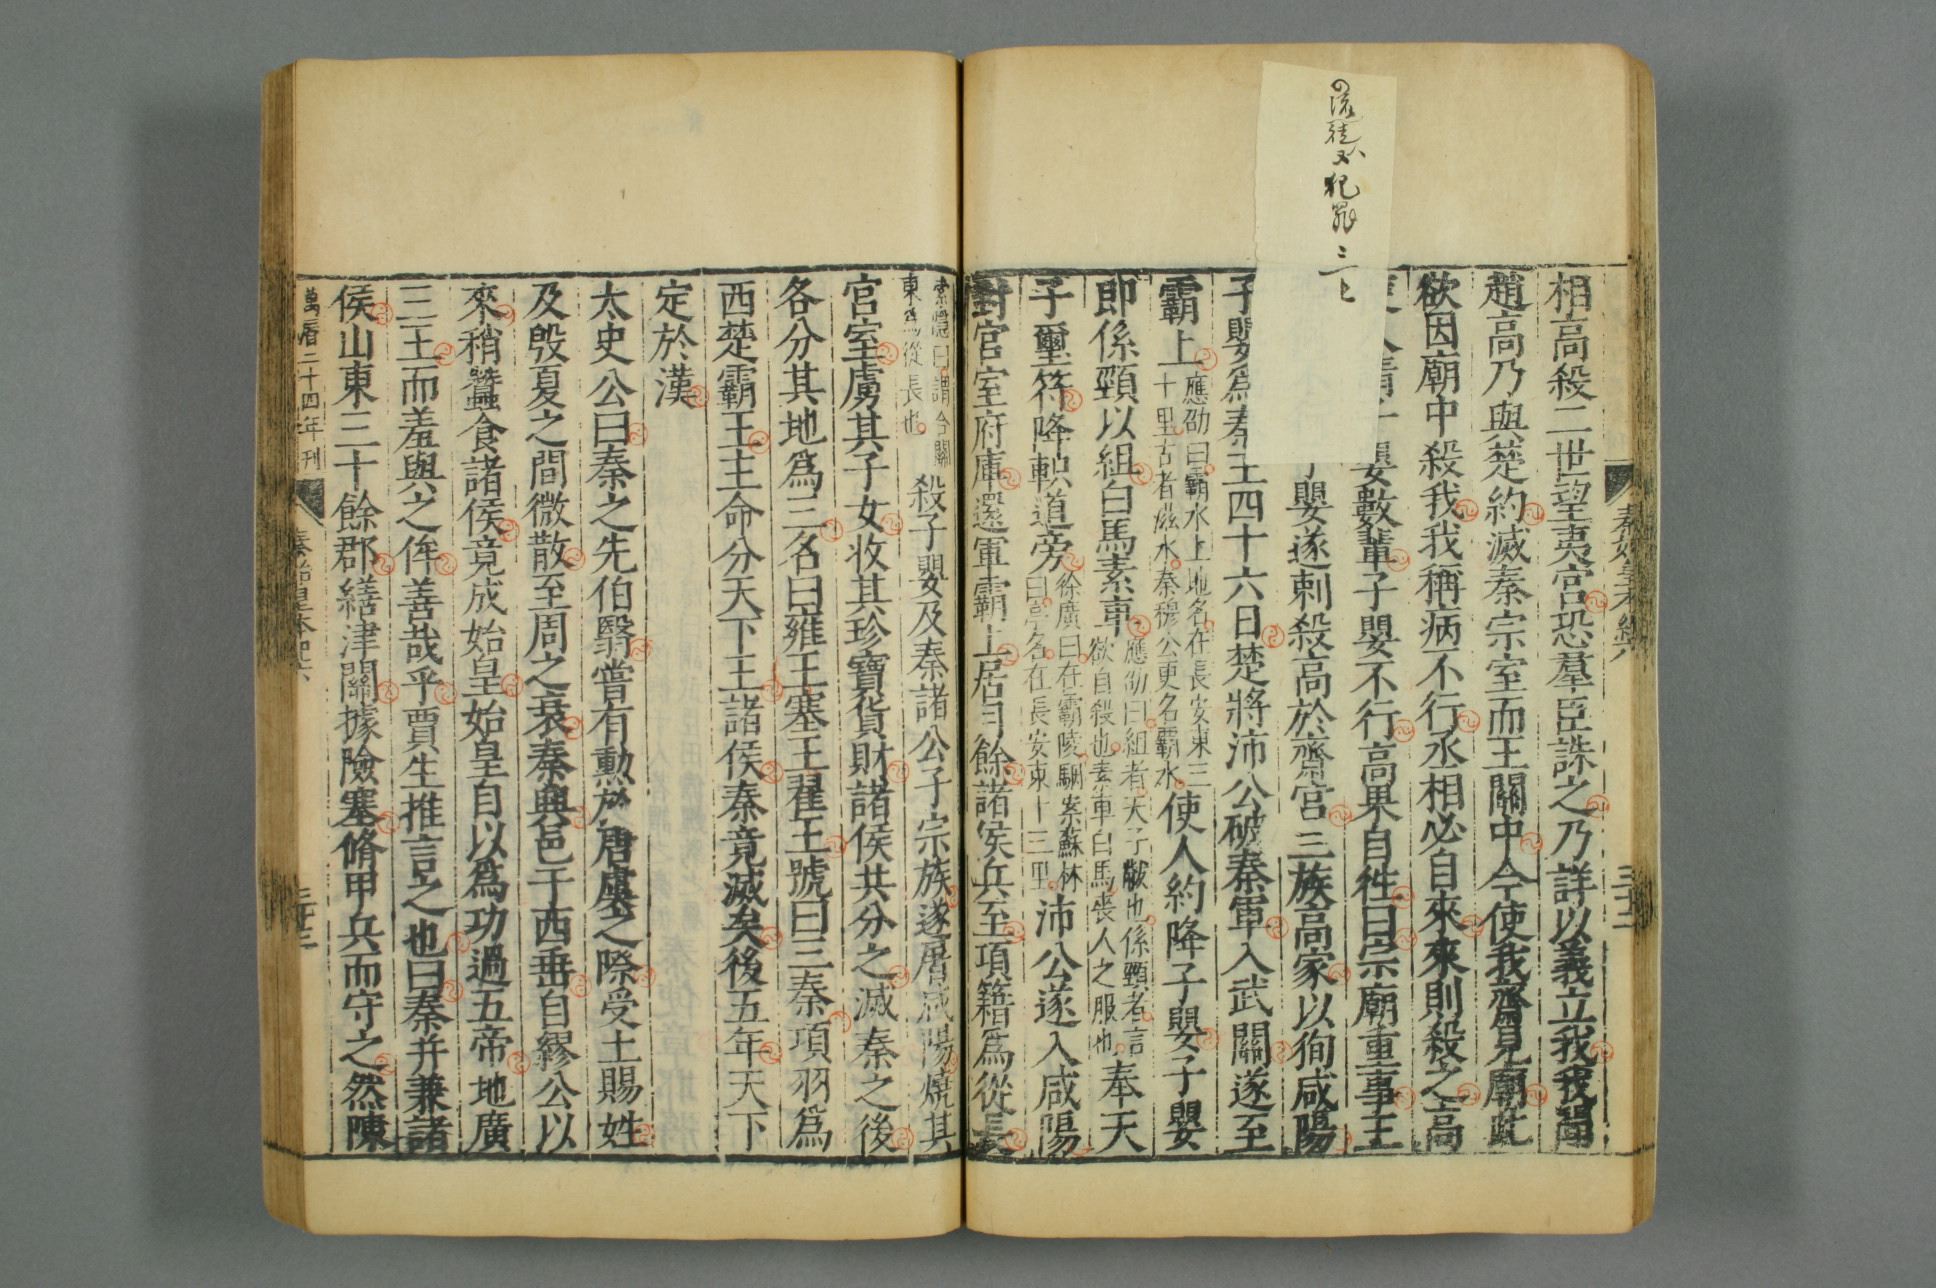 相高殺二世望夷宮恐羣臣誅之乃詳以義立我我聞
趙高乃與楚約滅秦宗室而王關中今使我齋見廟此
欲因廟中殺我我稱病不行丞相必自來來則殺之高
嬰數輩子嬰不行高果自往曰宗廟重事王
嬰遂刺殺高於齋宮三族高家以徇咸陽
子嬰爲秦王四十六日楚將沛公破秦軍入武關遂至
霸上應劭曰霸水上地名在長安東三十里古者滋水秦穆公更名霸水使人約降子嬰子嬰
即係頸以組白馬素車應劭曰組者天子黻也係頸者言欲自殺也素車白馬喪人之服也奉天
子璽符降軹道旁徐廣曰在霸陵駰案蘇林曰亭名在長安東十三里沛公遂入咸陽
封宮室府庫還軍霸上居月餘諸侯兵至項籍爲從長
索隱曰謂合關東爲從長也殺子嬰及秦諸公子宗族遂屠咸陽燒其
宮室虜其子女收其珍寶貨財諸侯共分之滅秦之後
各分其地爲三名曰雍王塞王翟王號曰三秦項羽爲
西楚霸王主命分天下王諸侯秦竟滅矣後五年天下
定於漢
太史公曰秦之先伯翳嘗有勳於唐虞之際受土賜姓
及殷夏之間微散至周之衰秦興邑于西垂自繆公以
來稍蠶食諸侯竟成始皇始皇自以爲功過五帝地廣
三王而羞與之侔善哉乎賈生推言之也曰秦并兼諸
侯山東三十餘郡繕津關據險塞脩甲兵而守之然陳
萬曆二十四年刊
秦始皇本紀六
三十二